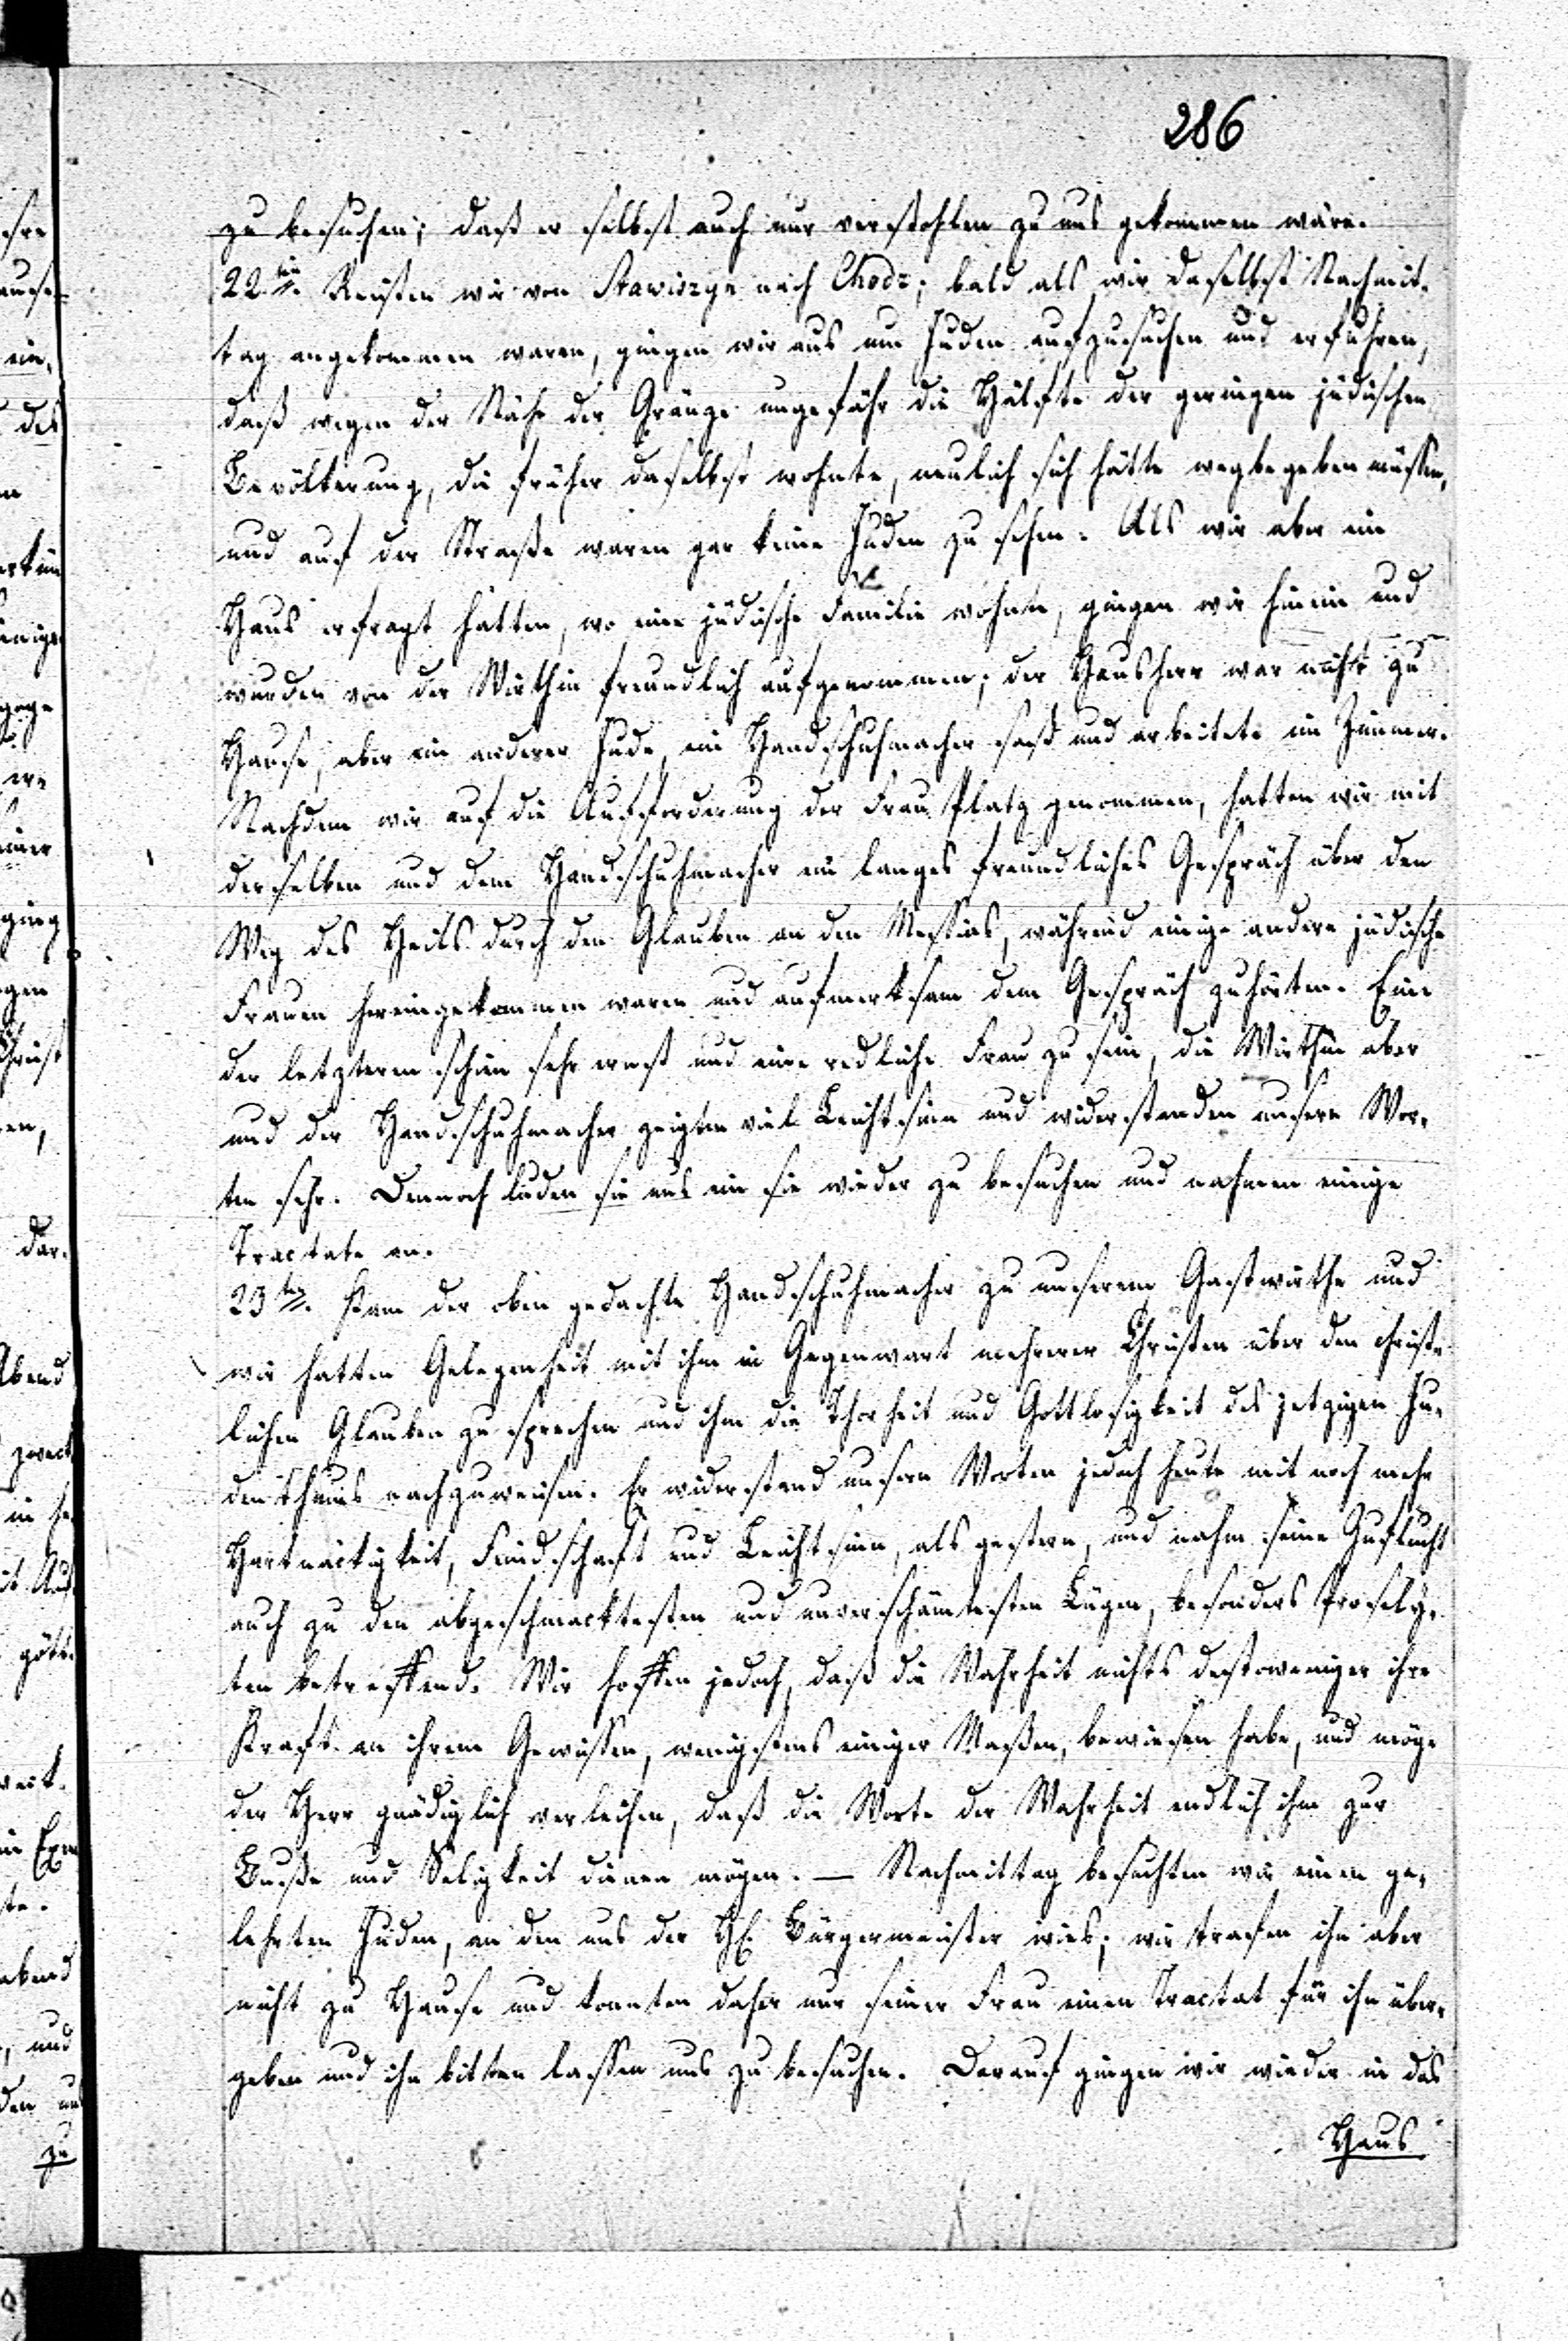 286
zu besuchen; daß er selbst auch nur verstohlen zu uns gekommen wäre.
22ten. Reisten wir von Stawiszyn nach Chodz; bald als wir daselbst Nachmit-
tag angekommen waren, gingen wir aus um Juden aufzusuchen und erfuhren,
daß wegen der Nähe der Gränze ungefähr die Hälfte der geringen jüdischen
Bevölkerung, die früher daselbst wohnte, neulich sich hätte wegbegeben müssen,
und auf der Straße waren gar keine Juden zu sehen. Als wir aber ein
Haus erfragt hatten, wo eine jüdische Familie wohnte, gingen wir hinein und
wurden von der Wirthin freundlich aufgenommen; der Hausherr war nicht zu
Hause, aber ein anderer Jude, ein Handschuhmacher saß und arbeitete im Zimmer.
Nachdem wir auf die Aufforderung der Frau Platz genommen, hatten wir mit
derselben und dem Handschuhmacher ein langes freundliches Gespräch über den
Weg des Heils durch den Glauben an den Messias, während einige andere jüdische
Frauen hereingekommen waren und aufmerksam dem Gespräch zuhörten. Eine
der letzteren schien sehr ernst und eine redliche Frau zu sein, die Wirthin aber
und der Handschuhmacher zeigten viel Leichtsinn und widerstanden unsern Wor-
ten sehr. Dennoch luden sie uns ein sie wieder zu besuchen und nahmen einige
Tractate an.
23ten. Kam der oben gedachte Handschuhmacher zu unserem Gastwirthe und
wir hatten Gelegenheit mit ihm in Gegenwart mehrerer Christen über den christ-
lichen Glauben zu sprechen und ihm die Thorheit und Gottlosigkeit des jetzigen Ju-
denthums nachzuweisen. Er widerstand unsern Worten jedoch heute mit noch mehr
Hartnäckigkeit, Feindschaft und Leichtsinn, als gestern, und nahm seine Zuflucht
auch zu den abgeschmacktesten und unverschämtesten Lügen, besonders Prosely-
ten betreffend. Wir hoffen jedoch, daß die Wahrheit nichts destoweniger ihre
Kraft an ihrem Gewissen, wenigstens einiger Maßen, bewiesen habe, und möge
der Herr gnädiglich verleihen, daß die Worte der Wahrheit endlich ihm zur
Buße und Seligkeit dienen mögen. — Nachmittag besuchten wir einen ge-
lehrten Juden, an den uns der H. Bürgermeister wies; wir trafen ihn aber
nicht zu Hause und konnten daher nur seiner Frau einen Tractat für ihn über-
geben und ihn bitten lassen uns zu besuchen. Darauf gingen wir wieder in das
Haus